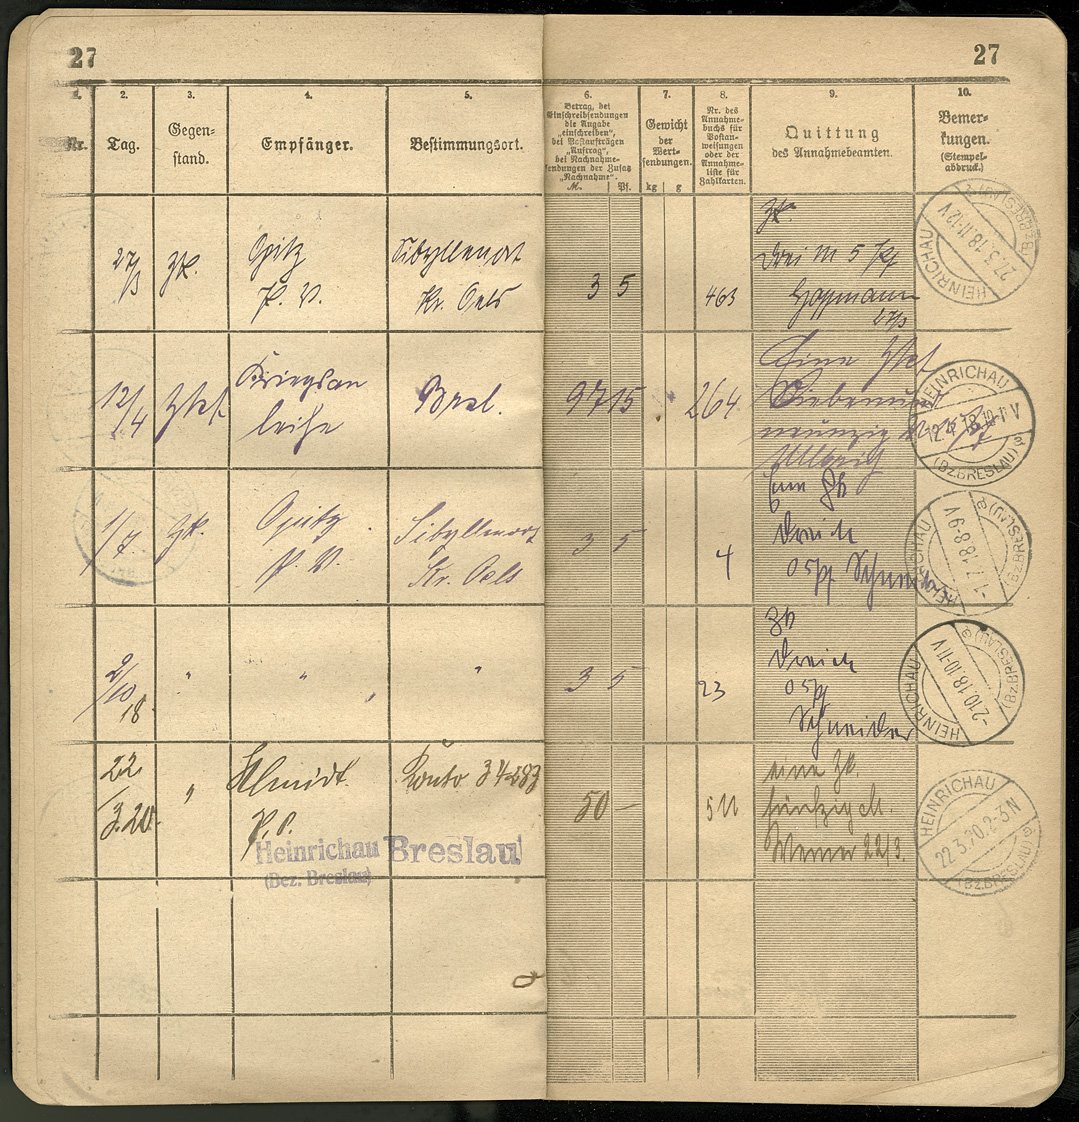 27
27
1.
Nr.
2.
Tag.
3.
Gegen-
stand.
4.
Empfänger.
5.
Bestimmungsort.
6.
Betrag, bei
Einschreibsendungen
die Angabe
„einschreiben“,
bei Postaufträgen
„Auftrag“,
bei Nachnahme-
sendungen der Zusatz
„Nachnahme“.
M. Pf.
7.
Gewicht
der
Wert-
sendungen.
kg g
8.
Nr. des
Annahme-
buchs für
Postan-
weisungen
oder der
Annahme-
liste für
Zahlkarten.
9.
Quittung
des Annahmebeamten.
10.
Bemer-
kungen.
(Stempel-
abdruck.)
27/3
Zk.
Opitz
P. V.
Sibyllenort
Kr. Oels
3 5
463
Zk.
drei M 5 Pf
Hoffmann
27/3
HEINRICHAU
27.3.18.11-12V
(Bz.BRESLAU)
12/4
Kriegsan
leihe
Bresl.
97 15
264
Eine
Siebenund
neunzig M
HEINRICHAU
12.4.18.10-11V
(Bz.BRESLAU)
1/7.
Zk.
Opitz
P. V.
Sibyllenort
Kr. Oels
3 5
4
Eine Zk
Drei M
05 Pf
HEINRICHAU
-1.7.18.8-9V
(Bz.BRESLAU)
2/10 18.
" " "
3 5
23
Zk
Drei M
05 Pf
Schneider
HEINRICHAU
-2.10.18.10-11V
(Bz.BRESLAU)
22/3.20.
"
P. V.
Konto 34283
50 —
511
eine Zk.
fünfzig M.
Werner 22/3.
Heinrichau
(Bez. Breslau)
Breslau
HEINRICHAU
22.3.20.2-3N
(Bz.BRESLAU)